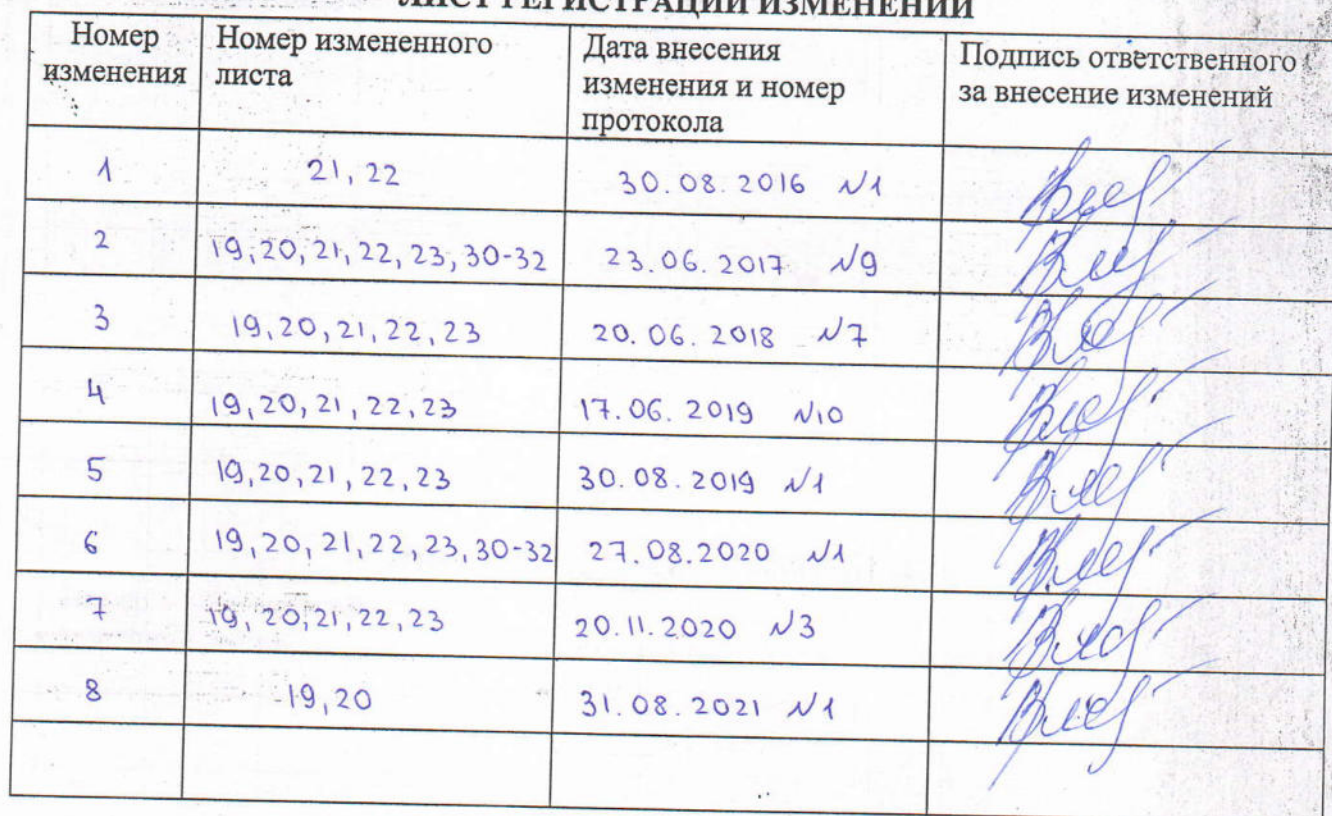 ЛИСТ РЕГИСТРАЦИИ ИЗМЕНЕНИЙ
Номер изменения
Номер измененного листа
Дата внесения изменения и номер протокола
Подпись ответственного за внесение изменений
1 21, 22 30.08.2016 №1
2 19, 20, 21, 22, 23, 30-32 23.06.2017 №9
3 19, 20, 21, 22, 23 20.06.2018 №7
4 19, 20, 21, 22, 23 17.06.2019 №10
5 19, 20, 21, 22, 23 30.08.2019 №1
6 19, 20, 21, 22, 23, 30-32 27.08.2020 №1
7 19, 20, 21, 22, 23 20.11.2020 №3
8 19, 20 31.08.2021 №1